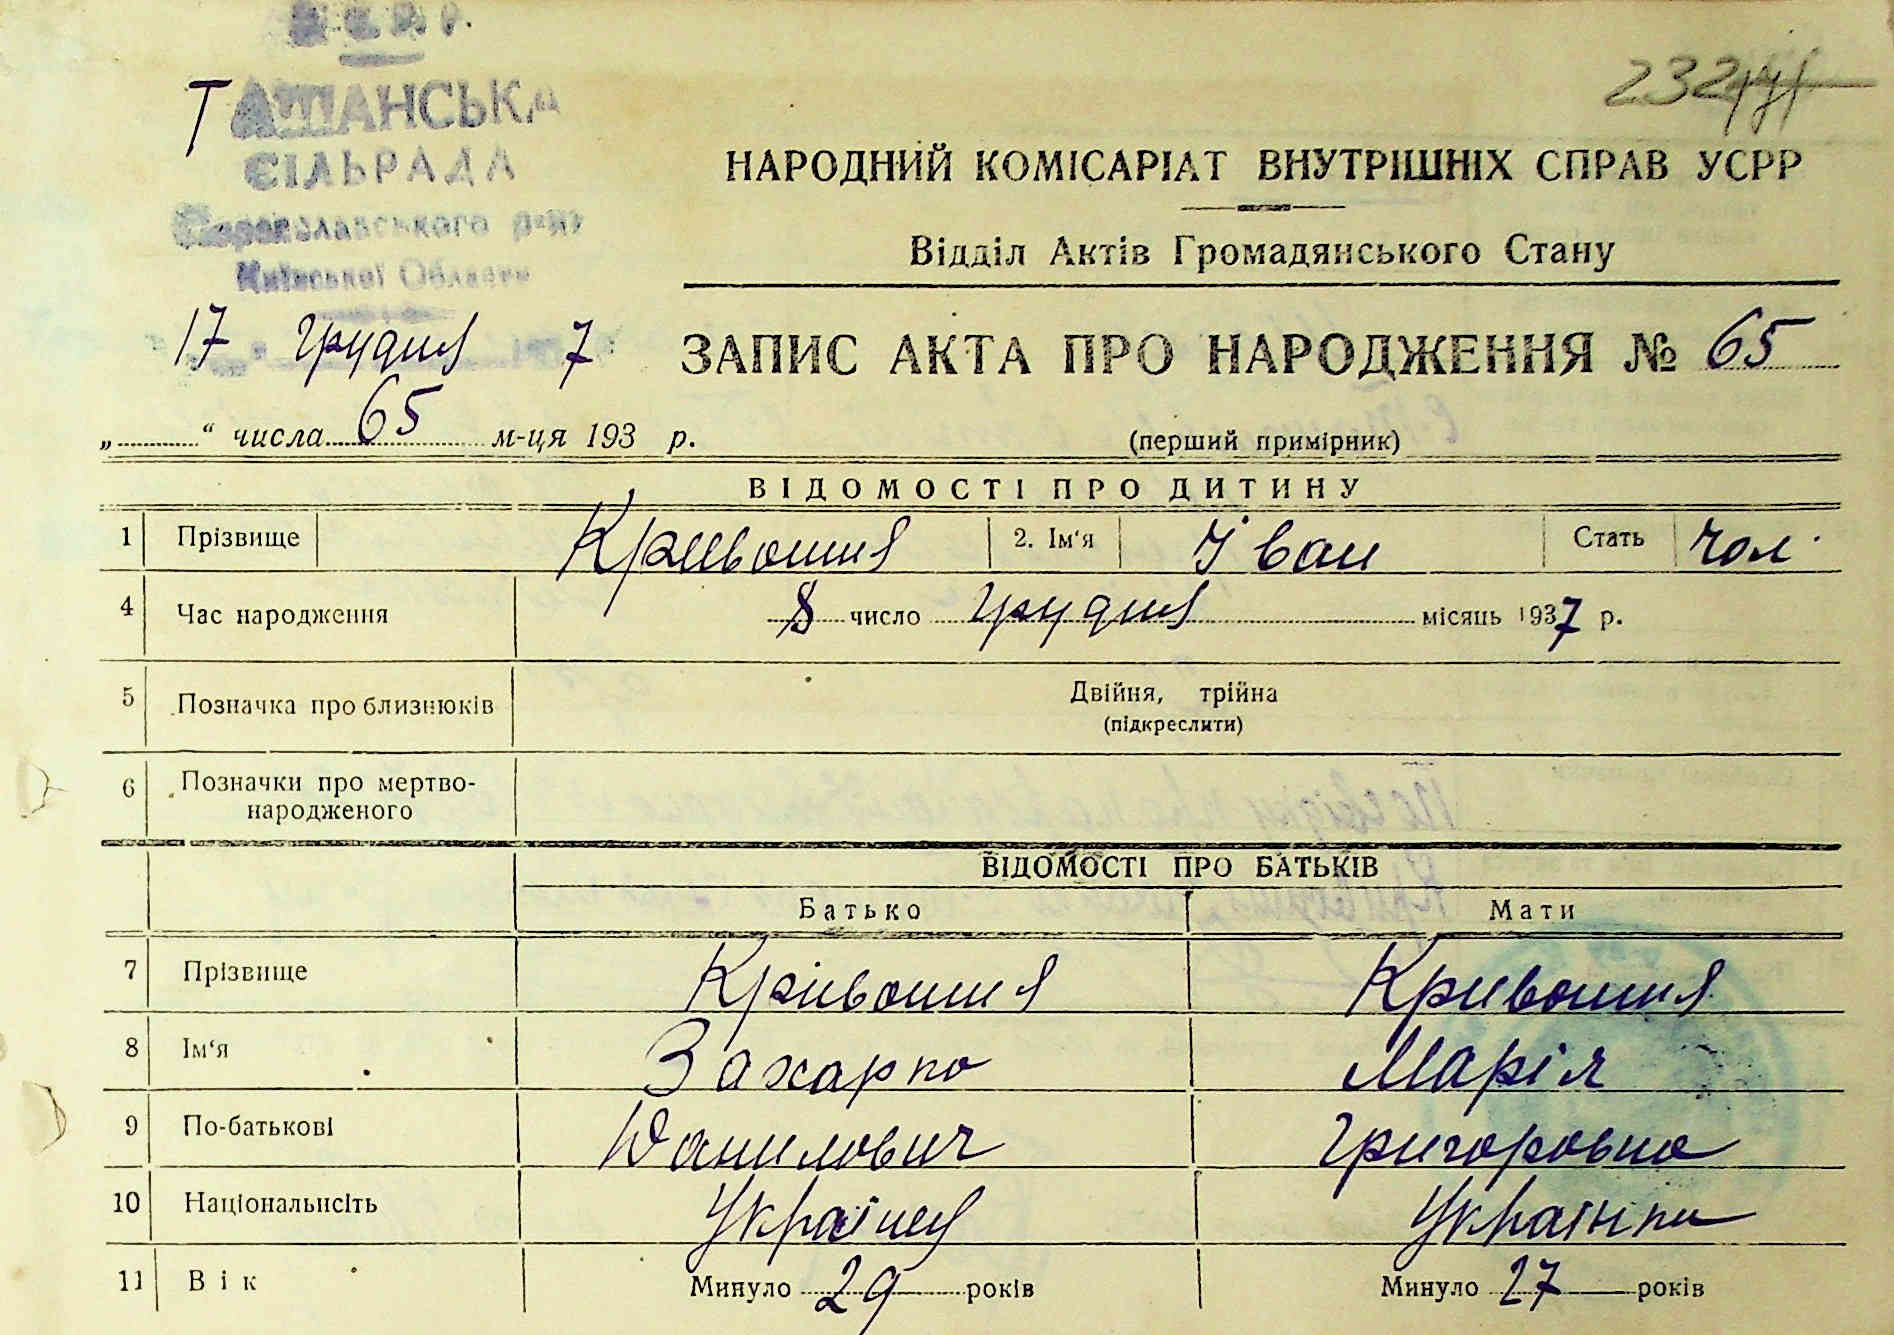 У.С.Р.Р.
ТАШАНСЬКА
СІЛЬРАДА
Переяславського р-ну
Київської Области
232
НАРОДНИЙ КОМІСАРІАТ ВНУТРІШНІХ СПРАВ УСРР
Відділ Актів Громадянського Стану
17 грудня 7
ЗАПИС АКТА ПРО НАРОДЖЕННЯ № 65
„ “ числа 65 м-ця 193 р.
(перший примірник)
ВІДОМОСТІ ПРО ДИТИНУ
1 Прізвище Кривошия 2. Ім'я Іван Стать чол.
4 Час народження 8 число грудня місяць 1937 р.
5 Позначка про близнюків Двійня, трійна
(підкреслити)
6 Позначки про мертво-
народженого
ВІДОМОСТІ ПРО БАТЬКІВ
Батько Мати
7 Прізвище Кривошия Кривошия
8 Ім'я Захарко Марія
9 По-батькові Данилович Григоровна
10 Національнсіть Українец Українка
11 Вік Минуло 29 років Минуло 27 років